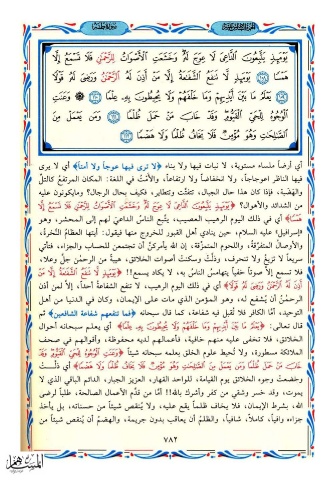 يَوْمَئِذٍ يَتَّبِعُونَ الدَّاعِيَ لَا عِوَجَ لَهُ وَخَشَعَتِ الْأَصْوَاتُ لِلرَّحْمَنِ فَلَا تَسْمَعُ إِلَّا
هَمْسًا ١٠٨ يَوْمَئِذٍ لَا تَنْفَعُ الشَّفَاعَةُ إِلَّا مَنْ أَذِنَ لَهُ الرَّحْمَنُ وَرَضِيَ لَهُ قَوْلًا
١٠٩ يَعْلَمُ مَا بَيْنَ أَيْدِيهِمْ وَمَا خَلْفَهُمْ وَلَا يُحِيطُونَ بِهِ عِلْمًا ١١٠ وَعَنَتِ
الْوُجُوهُ لِلْحَيِّ الْقَيُّومِ وَقَدْ خَابَ مَنْ حَمَلَ ظُلْمًا ١١١ وَمَنْ يَعْمَلْ مِنَ
الصَّالِحَاتِ وَهُوَ مُؤْمِنٌ فَلَا يَخَافُ ظُلْمًا وَلَا هَضْمًا ١١٢
أي أرضاً ملساء مستوية، لا نبات فيها ولا بناء ﴿لا ترى فيها عوجاً ولا أمتاً﴾ أي لا يرى
فيها الناظر اعوجاجاً، ولا انخفاضاً ولا ارتفاعاً، والأمْتُ في اللغة: المكان المرتفع كالتلّ
والهَضْبة، فإذا كان هذا حال الجبال، تتفتَّت وتتطاير، فكيف بحال الرجال؟ وما يكون عليه
من الشدائد والأهوال؟ ﴿يَوْمَئِذٍ يَتَّبِعُونَ الدَّاعِيَ لَا عِوَجَ لَهُ وَخَشَعَتِ الْأَصْوَاتُ لِلرَّحْمَنِ فَلَا تَسْمَعُ إِلَّا
هَمْسًا﴾ أي في ذلك اليوم الرهيب العصيب، يتَّبع الناسُ الداعيَ لهم إلى المحشر، وهو
«إسرافيل» عليه السلام، حين ينادي أهل القبور للخروج منها فيقول: أيتها العظامُ النَّخِرة،
والأوصالُ المتفرِّقة، واللحوم المتمزِّقة، إن الله يأمركنَّ أن تجتمعن للحساب والجزاء، فتأتي
سريعاً لا تزيغُ ولا تنحرف، وذلَّت وسكنت أصوات الخلائق، هيبةً من الرحمن جلَّ وعلا،
فلا تسمع إلاّ صوتاً خفياً يتهامسُ الناسُ به، لا يكاد يسمع!! ﴿يَوْمَئِذٍ لَا تَنْفَعُ الشَّفَاعَةُ إِلَّا مَنْ
أَذِنَ لَهُ الرَّحْمَنُ وَرَضِيَ لَهُ قَوْلًا﴾ أي في ذلك اليوم الرهيب، لا تنفع الشفاعةُ أحداً، إلّا لمن أذن
الرحمنُ أن يُشفع له، وهو المؤمن الذي مات على الإيمان، وكان في الدنيا من أهل
التوحيد، أمَّا الكافر فلا تُقبل فيه شفاعة، كما قال سبحانه ﴿فما تنفعهم شفاعة الشافعين﴾ ثم
قال تعالى: ﴿يَعْلَمُ مَا بَيْنَ أَيْدِيهِمْ وَمَا خَلْفَهُمْ وَلَا يُحِيطُونَ بِهِ عِلْمًا﴾ أي يعلم سبحانه أحوال
الخلائق، فلا تخفى عليه منهم خافية، فأعمالهم لديه محفوظة، وأقوالهم في صحف
الملائكة مسطورة، ولا تُحيط علوم الخلق بعلمه سبحانه شيئاً ﴿وَعَنَتِ الْوُجُوهُ لِلْحَيِّ الْقَيُّومِ وَقَدْ
خَابَ مَنْ حَمَلَ ظُلْمًا وَمَنْ يَعْمَلْ مِنَ الصَّالِحَاتِ وَهُوَ مُؤْمِنٌ فَلَا يَخَافُ ظُلْمًا وَلَا هَضْمًا﴾ أي ذلَّت
وخضعت وجوه الخلائق يوم القيامة، للواحد القهار، العزيز الجبار، الدائم الباقي الذي لا
يموت، وقد خسر وشقي من كفر وأشرك بالله!! أمَّا من قدَّم الأعمال الصالحة، طلباً لرضى
الله، بشرط الإيمان، فلا يخاف ظلماً يقع عليه، ولا يُنقص شيئاً من حسناته، بل يأخذ
جزاءه وافياً، كاملاً، شافياً، والظلمُ أن يعاقب بدون جريمة، والهضمُ أن يُنقص شيئاً من
٧٨٢